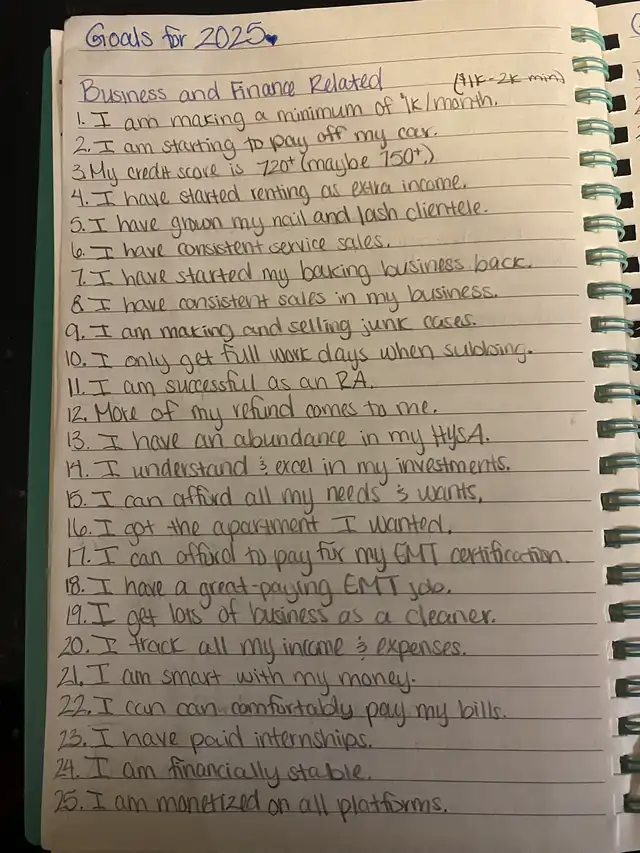 Goals for 2025
Business and Finance Related
($1K-2K min)
1. I am making a minimum of 1K/month.
2. I am starting to pay off my car.
3. My credit score is 720+ (maybe 750+)
4. I have started renting as extra income.
5. I have grown my nail and lash clientele.
6. I have consistent service sales.
7. I have started my baking business back.
8. I have consistent sales in my business.
9. I am making and selling junk cases.
10. I only get full work days when subbing.
11. I am successful as an RA.
12. More of my refund comes to me.
13. I have an abundance in my HYSA.
14. I understand & excel in my investments.
15. I can afford all my needs & wants.
16. I got the apartment I wanted.
17. I can afford to pay for my EMT certification.
18. I have a great-paying EMT job.
19. I get lots of business as a cleaner.
20. I track all my income & expenses.
21. I am smart with my money.
22. I can can comfortably pay my bills.
23. I have paid internships.
24. I am financially stable.
25. I am monetized on all platforms.